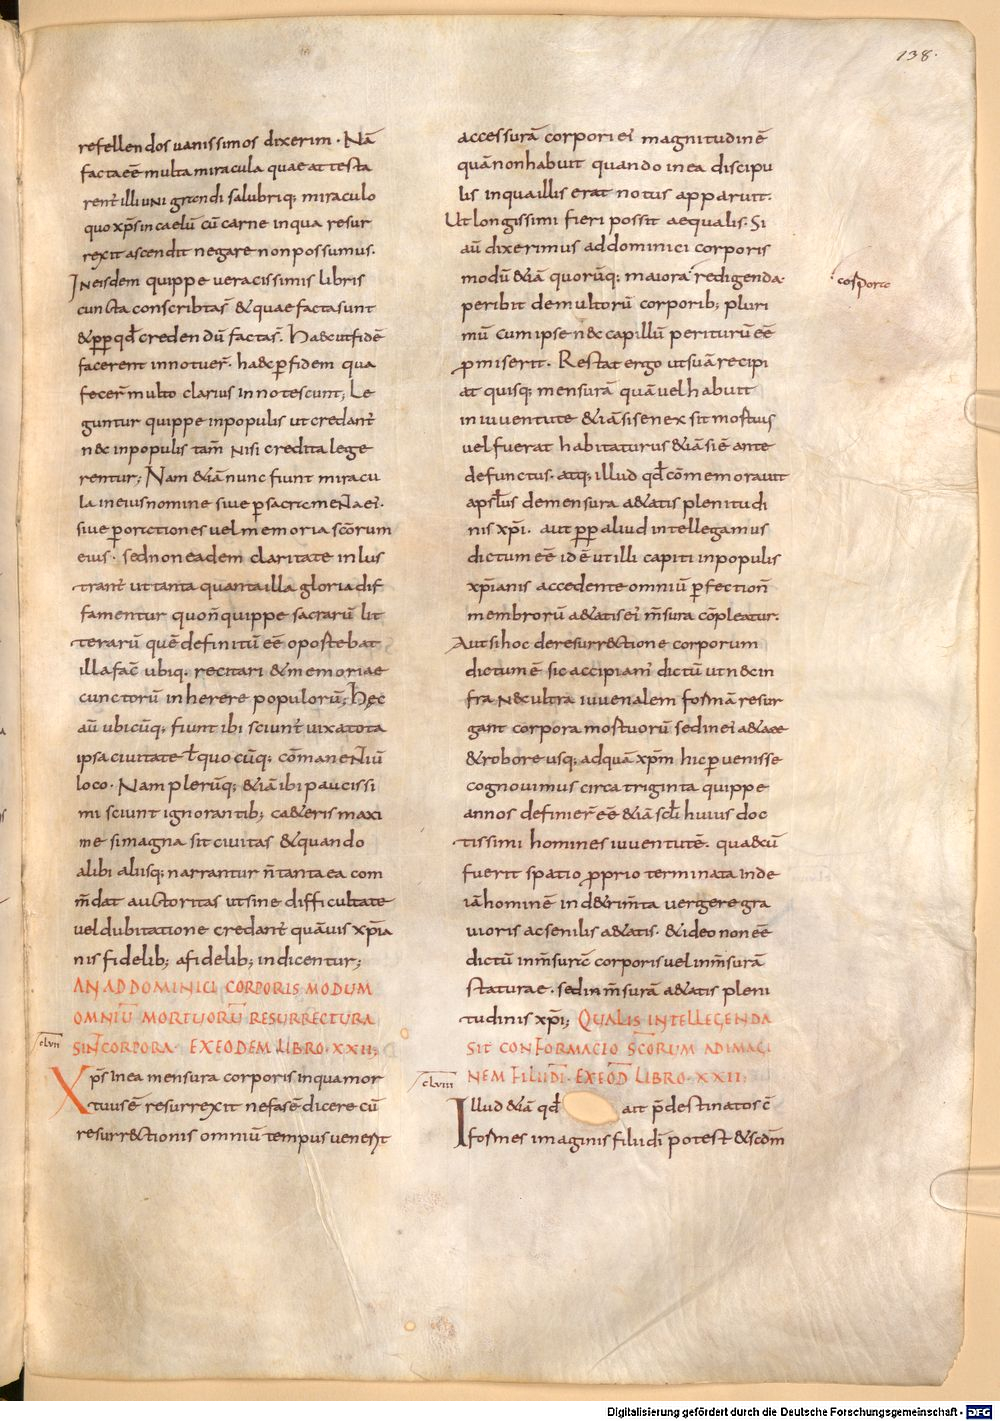 138.
refellendos uanissimos dixerim · Nā
facta eē multa miracula quae attesta
rent̄ illi uni grandi salubriq; miraculo
quo xp̄s in caelū cū carne in qua resur
rexit ascendit negare non possumus.
In eisdem quippe ueracissimis libris
cuncta conscribta s̄ & quae facta sunt
& pp̄ qđ credendū facta s̄. Haec ut fidē
facerent innotuer̄. haec p̄ fidem qua
fecer̄ multo clarius innotescunt; Le
guntur quippe in populis ut credant̄
nec in populis tam̄ nisi credita lege
rentur; Nam &iā nunc fiunt miracu
la in eius nomine siue p̄ sacramenta ei.
siue p̄ orationes uel memoria sc̄orum
eius · sed non eadem claritate inlus
trant̄ ut tanta quanta illa gloria dif
famentur quon̄ quippe sacrarū lit
terarū quē definitū eē oportebat
illa fac̄ ubiq. recitari & memoriae
cunctorū inherere populorū; Hęc
aū ubicūq; fiunt ibi sciunt̄ uix a tota
ipsa ciuitate ł quocūq; cōmanentiū
loco. Nam plerūq; &iā ibi paucissi
mi sciunt ignorantib; ceteris maxi
me si magna sit ciuitas & quando
alibi aliisq; narrantur n̄ tanta ea com
m̄dat auctoritas ut sine difficultate
uel dubitatione credant̄ quāuis xp̄ia
nis fidelib; a fidelib; indicentur;
AN AD DOMINICI CORPORIS MODUM
OMNIŪ MORTUORŪ RESURRECTURA
SINT CORPORA · EX EODEM LIBRO · XXII;
clvii
Xp̄s in ea mensura corporis in qua mor
tuus ē resurrexit nefas ē dicere cū
resurrectionis omniū tempus uenerit
accessurā corpori ei magnitudinē
quā non habuit quando in ea discipu
lis in qua illis erat notus apparuit.
Ut longissimi fieri possit aequalis. Si
aū dixerimus ad dominici corporis
modū &iā quorūq; maiora redigenda.
corpora
peribit de multorū corporib; pluri
mū cum ipse nec capillū periturū eē
p̄miserit. Restat ergo ut suā recipi
at quisq; mensurā quā uel habuit
in iuuentute &iā si senex sit mortuus
uel fuerat habitaturus &iā si ē ante
defunctus. atq; illud qđ cōmemorauit
apsłus de mensura aetatis plenitudi
nis xp̄i. aut pp̄ aliud intellegamus
dictum eē id ē ut illi capiti in populis
xp̄ianis accedente omniū p̄fection̄
membrorū aetatis ei m̄sura cōpleatur.
Aut si hoc de resurrectione corporum
dictum ē sic accipiam̄ dictū ut nec in
fra nec ultra iuuenalem formā resur
gant corpora mortuorū sed in ei aetate
& robore usq; ad quā xp̄m hic p̄uenisse
cognouimus circa triginta quippe
annos definier̄ eē &iā scłi huius doc
tissimi homines iuuentutē. quae cū
fuerit spatio p̄prio terminata inde
iā hominē in detrim̄ta uergere gra
uioris ac senilis aetatis. & ideo non eē
dictū in m̄surā corporis uel in m̄surā
staturae. sed in m̄surā aetatis pleni
tudinis xp̄i; QUALIS INTELLEGENDA
SIT CONFORMACIO SC̄ORUM AD IMAGI
NEM FILII DĪ · EX EOD̄ LIBRO · XXII;
clviii
Illud &iā qđ ait p̄destinatos c̄
formes imaginis filii dī potest & scdm̄
Digitalisierung gefördert durch die Deutsche Forschungsgemeinschaft - DFG